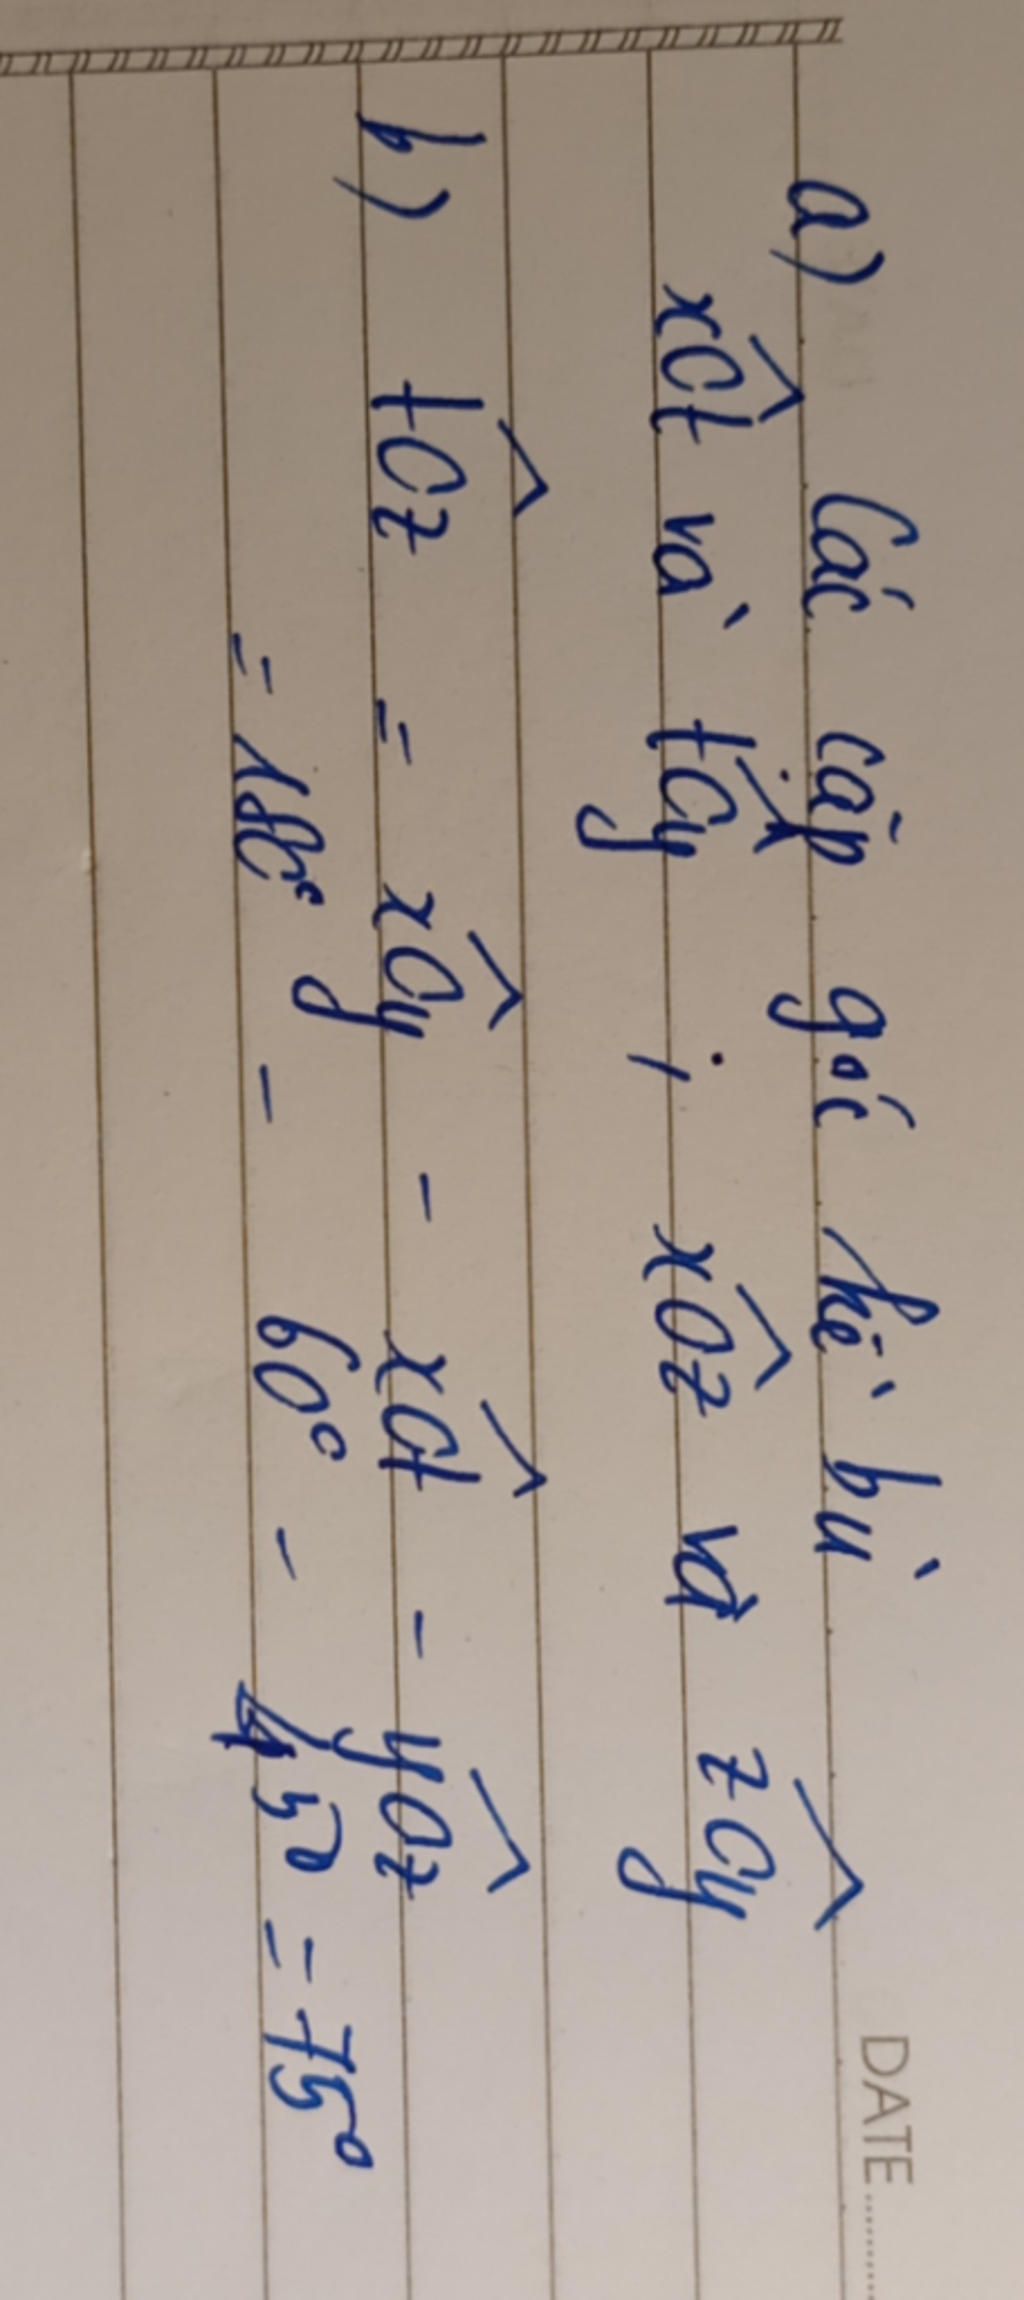 DATE..........
a) Các cặp góc kề bù
xOt và tOy ; xOz và zOy
b) tOz = xOy - xOt - yOz
= 180° - 60° - 45° = 75°